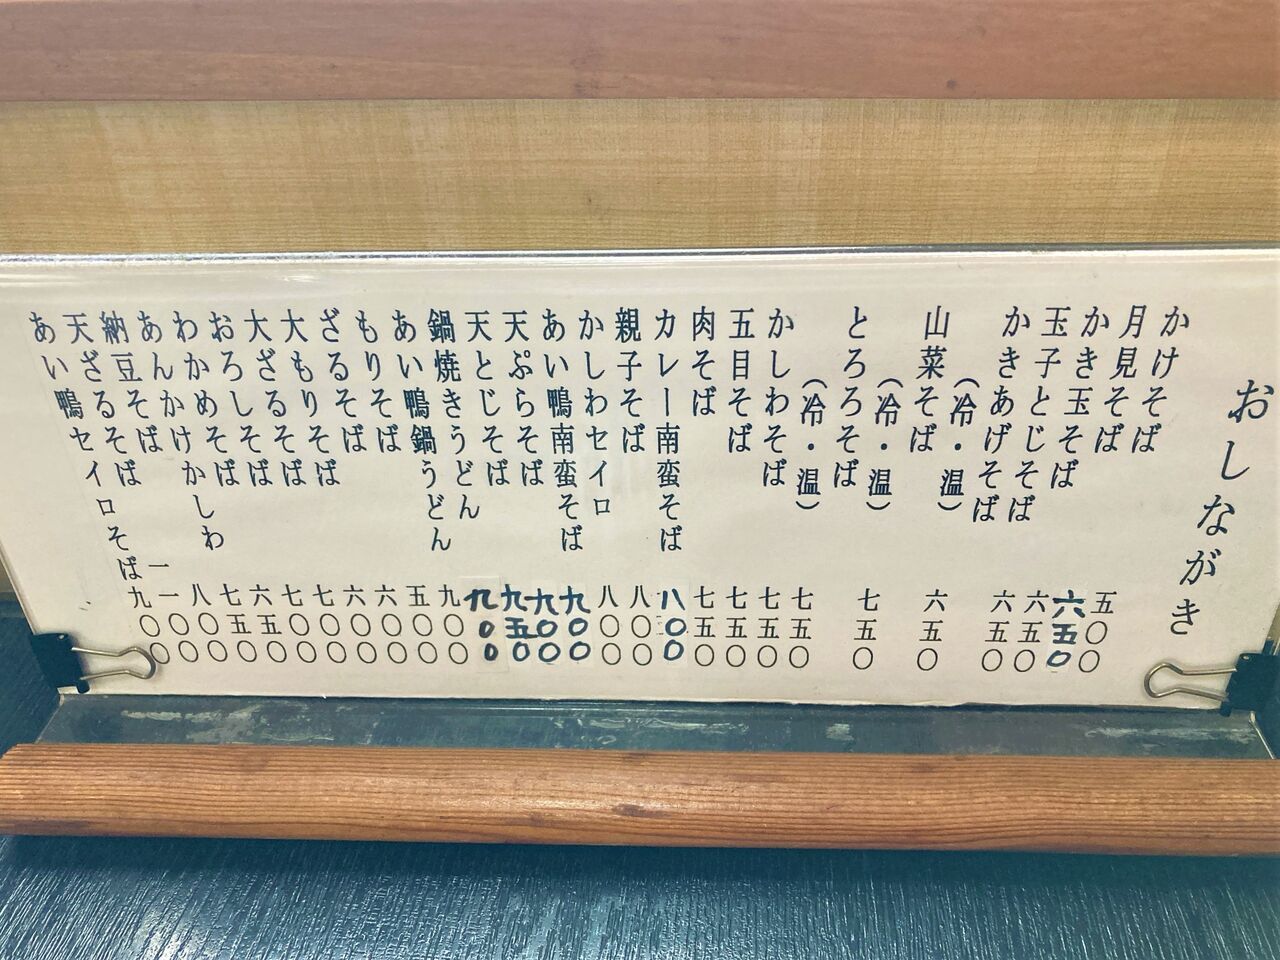 おしながき
かけそば 五〇〇
月見そば 六五〇
かき玉そば 六五〇
玉子とじそば 六五〇
かきあげそば(冷・温) 六五〇
山菜そば(冷・温) 七五〇
とろろそば(冷・温) 七五〇
かしわそば 七五〇
五目そば 七五〇
肉そば 七五〇
カレー南蛮そば 八〇〇
親子そば 八〇〇
かしわセイロ 八〇〇
あい鴨南蛮そば 九〇〇
天ぷらそば 九〇〇
天とじそば 九五〇
鍋焼きうどん 九〇〇
あい鴨鍋うどん 九〇〇
もりそば 五〇〇
ざるそば 六〇〇
大もりそば 六〇〇
大ざるそば 七〇〇
おろしそば 七〇〇
わかめそば 六五〇
あんかけかしわ 七五〇
納豆そば 八〇〇
天ざるそば 一一〇〇
あい鴨セイロそば 九〇〇